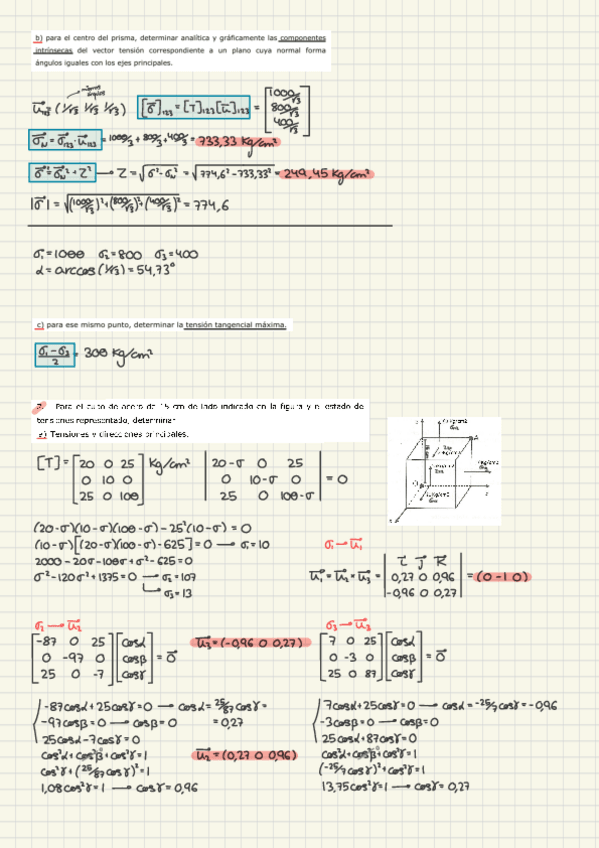 b) para el centro del prisma, determinar analítica y gráficamente las componentes
intrínsecas del vector tensión correspondiente a un plano cuya normal forma
ángulos iguales con los ejes principales.
u⃗₁₂₃ (1/√3 1/√3 1/√3) [σ⃗]₁₂₃ = [T]₁₂₃ [u⃗]₁₂₃ = [1000/√3 800/√3 400/√3]
σ⃗N = σ⃗₁₂₃ · u⃗₁₂₃ = 1000/3 + 800/3 + 400/3 = 733,33 Kg/cm²
σ⃗² = σ⃗N² + τ² → τ = √σ² - σN² = √774,6² - 733,33² = 249,45 Kg/cm²
|σ⃗| = √(1000/√3)² + (800/√3)² + (400/√3)² = 774,6
σ₁ = 1000 σ₂ = 800 σ₃ = 400
α = arccos (1/√3) = 54,73°
c) para ese mismo punto, determinar la tensión tangencial máxima.
σ₁ - σ₃ / 2 = 300 Kg/cm²
Para el cubo de acero de 15 cm de lado indicado en la figura y el estado de
tensiones representado, determinar
a) Tensiones y direcciones principales.
[T] = [20 0 25 Kg/cm² |20-σ 0 25
0 10 0 0 10-σ 0 = 0
25 0 100] 25 0 100-σ|
(20-σ)(10-σ)(100-σ) - 25²(10-σ) = 0
(10-σ)[(20-σ)(100-σ) - 625] = 0 → σ₁ = 10
2000 - 20σ - 100σ + σ² - 625 = 0
σ² - 120σ² + 1375 = 0 → σ₂ = 107
σ₃ = 13
σ₁ → u⃗₁
u⃗₁ = u⃗₂ × u⃗₃ = | i⃗ j⃗ k⃗
0,27 0 0,96 = (0 -1 0)
-0,96 0 0,27|
σ₂ → u⃗₂
[-87 0 25 [cosα
0 -97 0 cosβ = 0⃗
25 0 -7] cosγ]
u⃗₃ = (-0,96 0 0,27)
-87cosα + 25cosγ = 0 → cosα = 25/87 cosγ =
-97cosβ = 0 → cosβ = 0 = 0,27
25cosα - 7cosγ = 0
cos²α + cos²β + cos²γ = 1
u⃗₂ = (0,27 0 0,96)
cos²γ + (25/87 cosγ)² = 1
1,08cos²γ = 1 → cosγ = 0,96
σ₃ → u⃗₃
[7 0 25 [cosα
0 -3 0 cosβ = 0⃗
25 0 87] cosγ]
7cosα + 25cosγ = 0 → cosα = -25/7 cosγ = -0,96
-3cosβ = 0 → cosβ = 0
25cosα + 87cosγ = 0
cos²α + cos²β + cos²γ = 1
(-25/7 cosγ)² + cos²γ = 1
13,75cos²γ = 1 → cosγ = 0,27